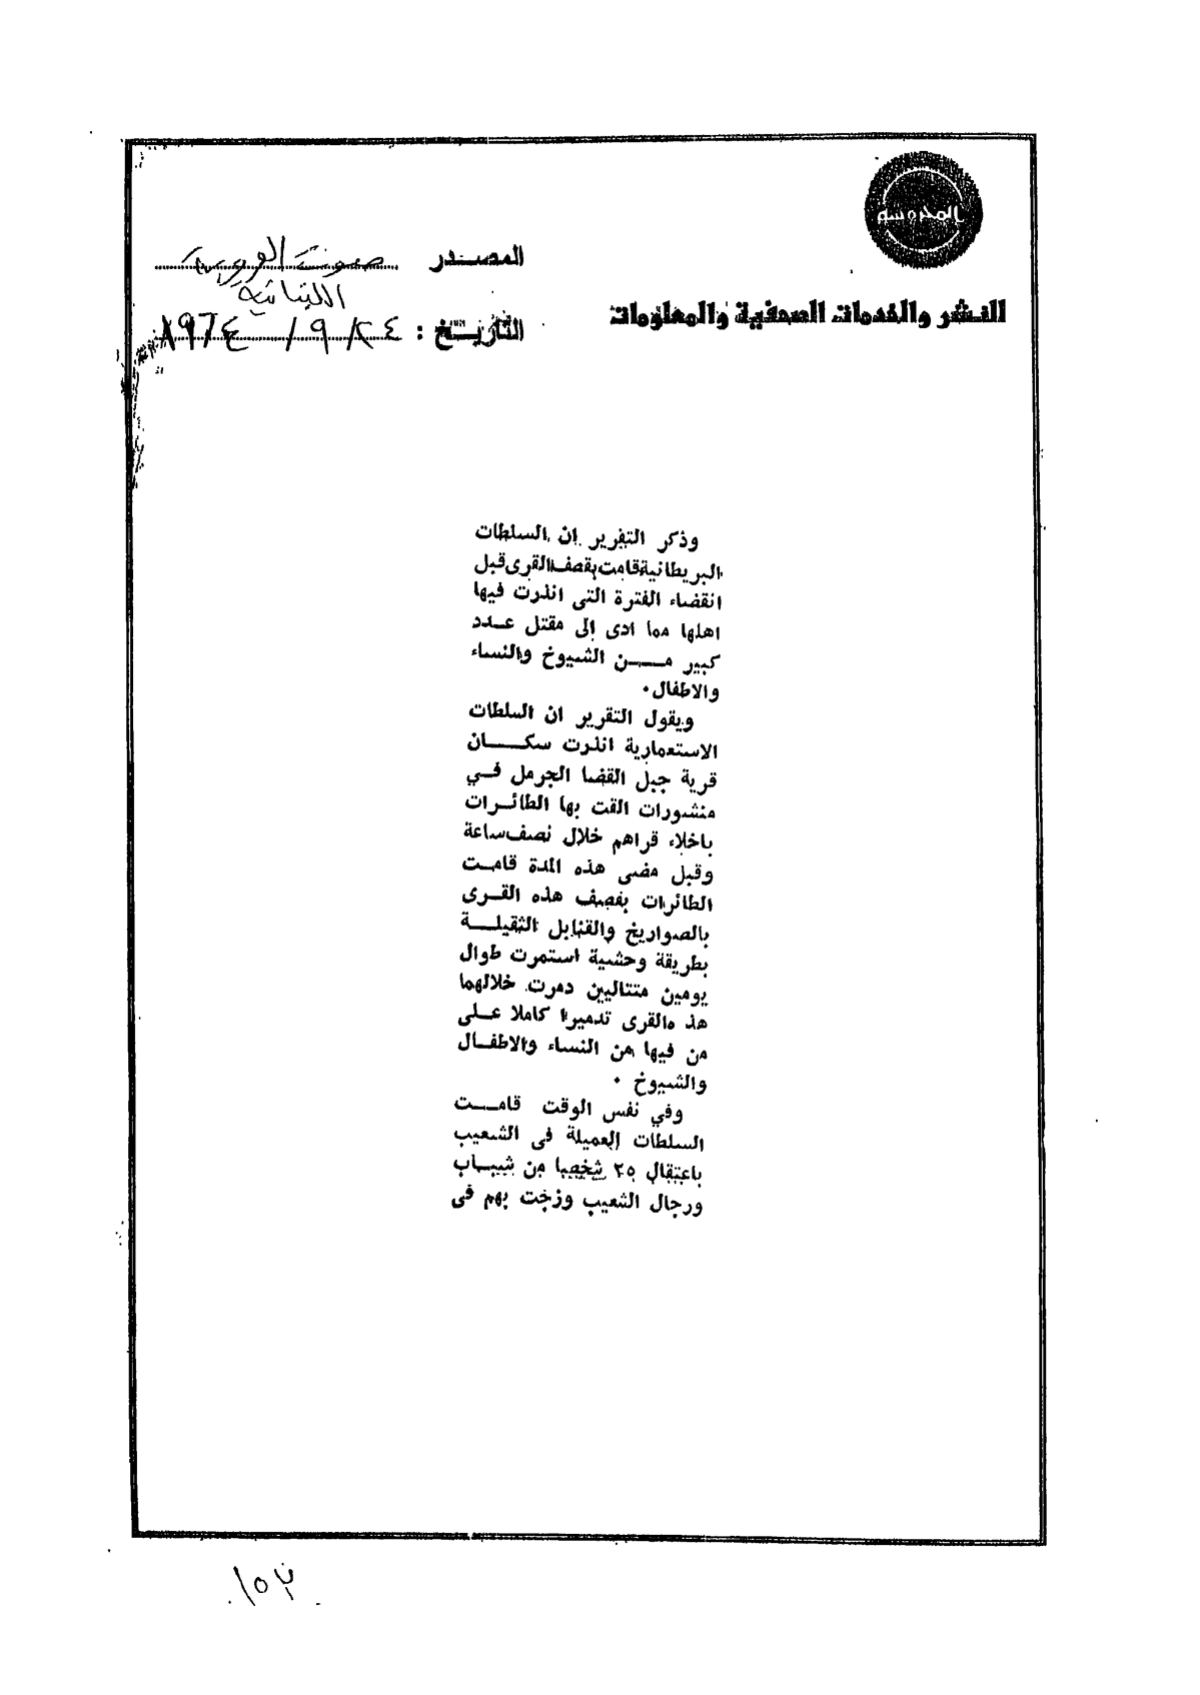 المحروسة
المصدر صوت العروبة
اللبنانية
النشر والخدمات الصحفية والمعلومات
التاريخ : ٢٤ / ٩ / ١٩٦٤
وذكر التقرير ان السلطات
البريطانية قامت بقصف القرى قبل
انقضاء الفترة التى انذرت فيها
اهلها مما ادى إلى مقتل عــدد
كبير مــــن الشيوخ والنساء
والاطفال ٠
ويقول التقرير ان السلطات
الاستعمارية انذرت سكــــان
قرية جبل القضا الجرمل فــي
منشورات القت بها الطائــرات
باخلاء قراهم خلال نصف ساعة
وقبل مضى هذه المدة قامــت
الطائرات بقصف هذه القــرى
بالصواريخ والقنابل الثقيلــة
بطريقة وحشية استمرت طوال
يومين متتاليين دمرت خلالهما
هذه القرى تدميرا كاملا علــى
من فيها من النساء والاطفــال
والشيوخ ٠
وفي نفس الوقت قامـــت
السلطات العميلة فى الشعيب
باعتقال ٢٥ شخصا من شبــاب
ورجال الشعيب وزجت بهم فى